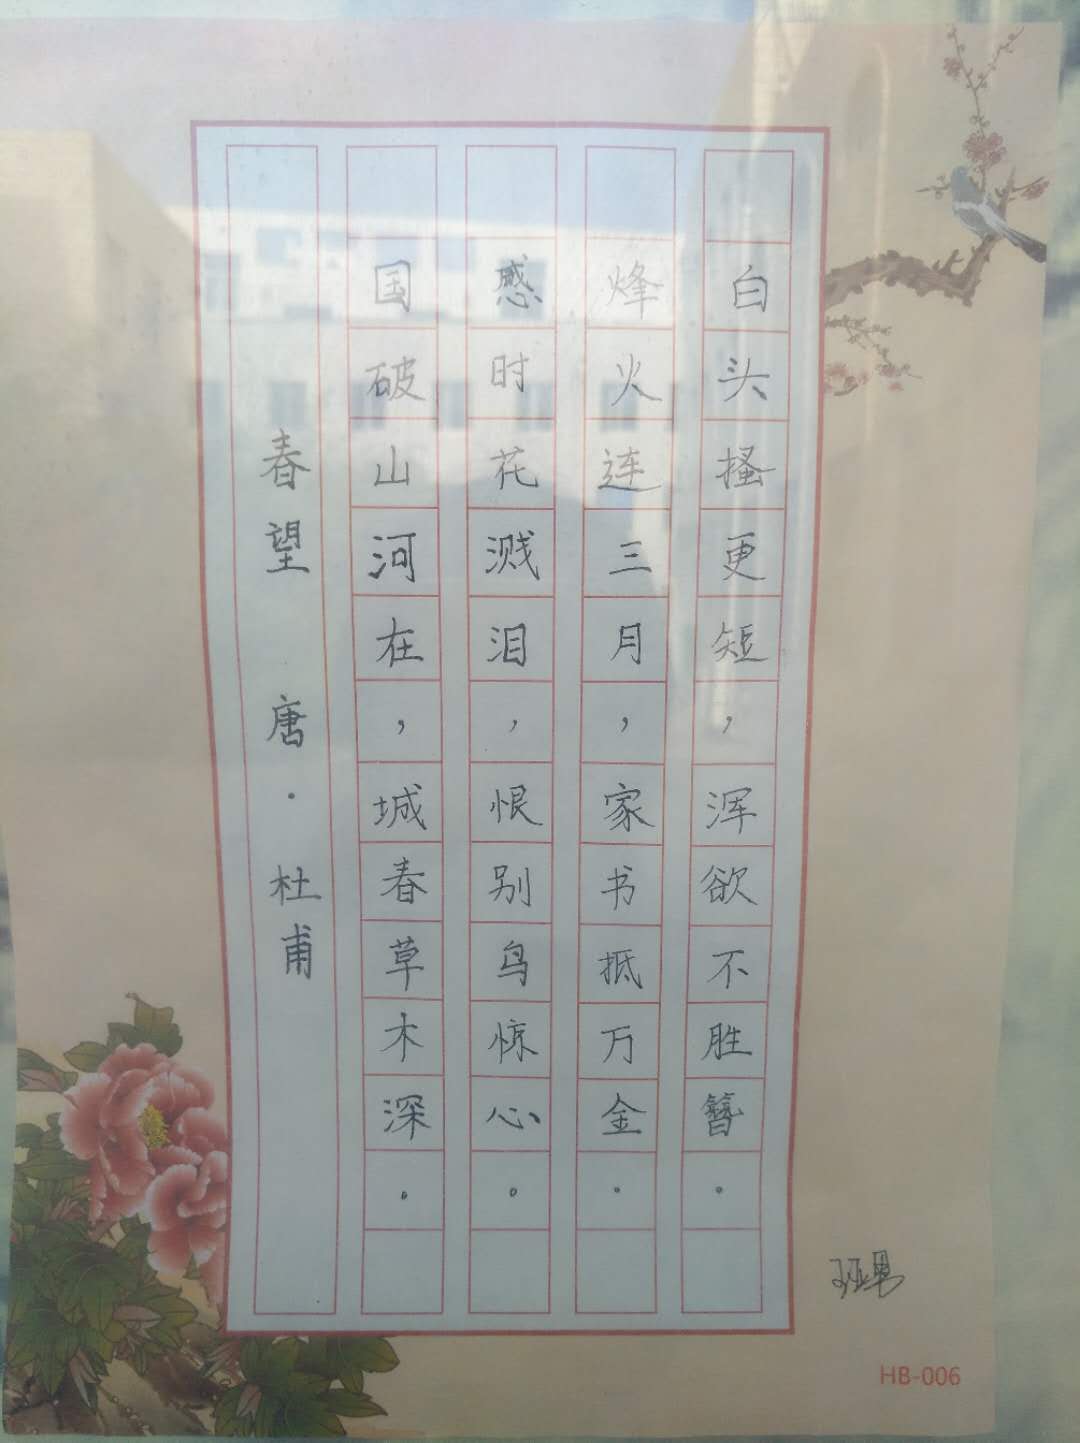 春望 唐·杜甫
国破山河在，城春草木深。
感时花溅泪，恨别鸟惊心。
烽火连三月，家书抵万金。
白头搔更短，浑欲不胜簪。
HB-006